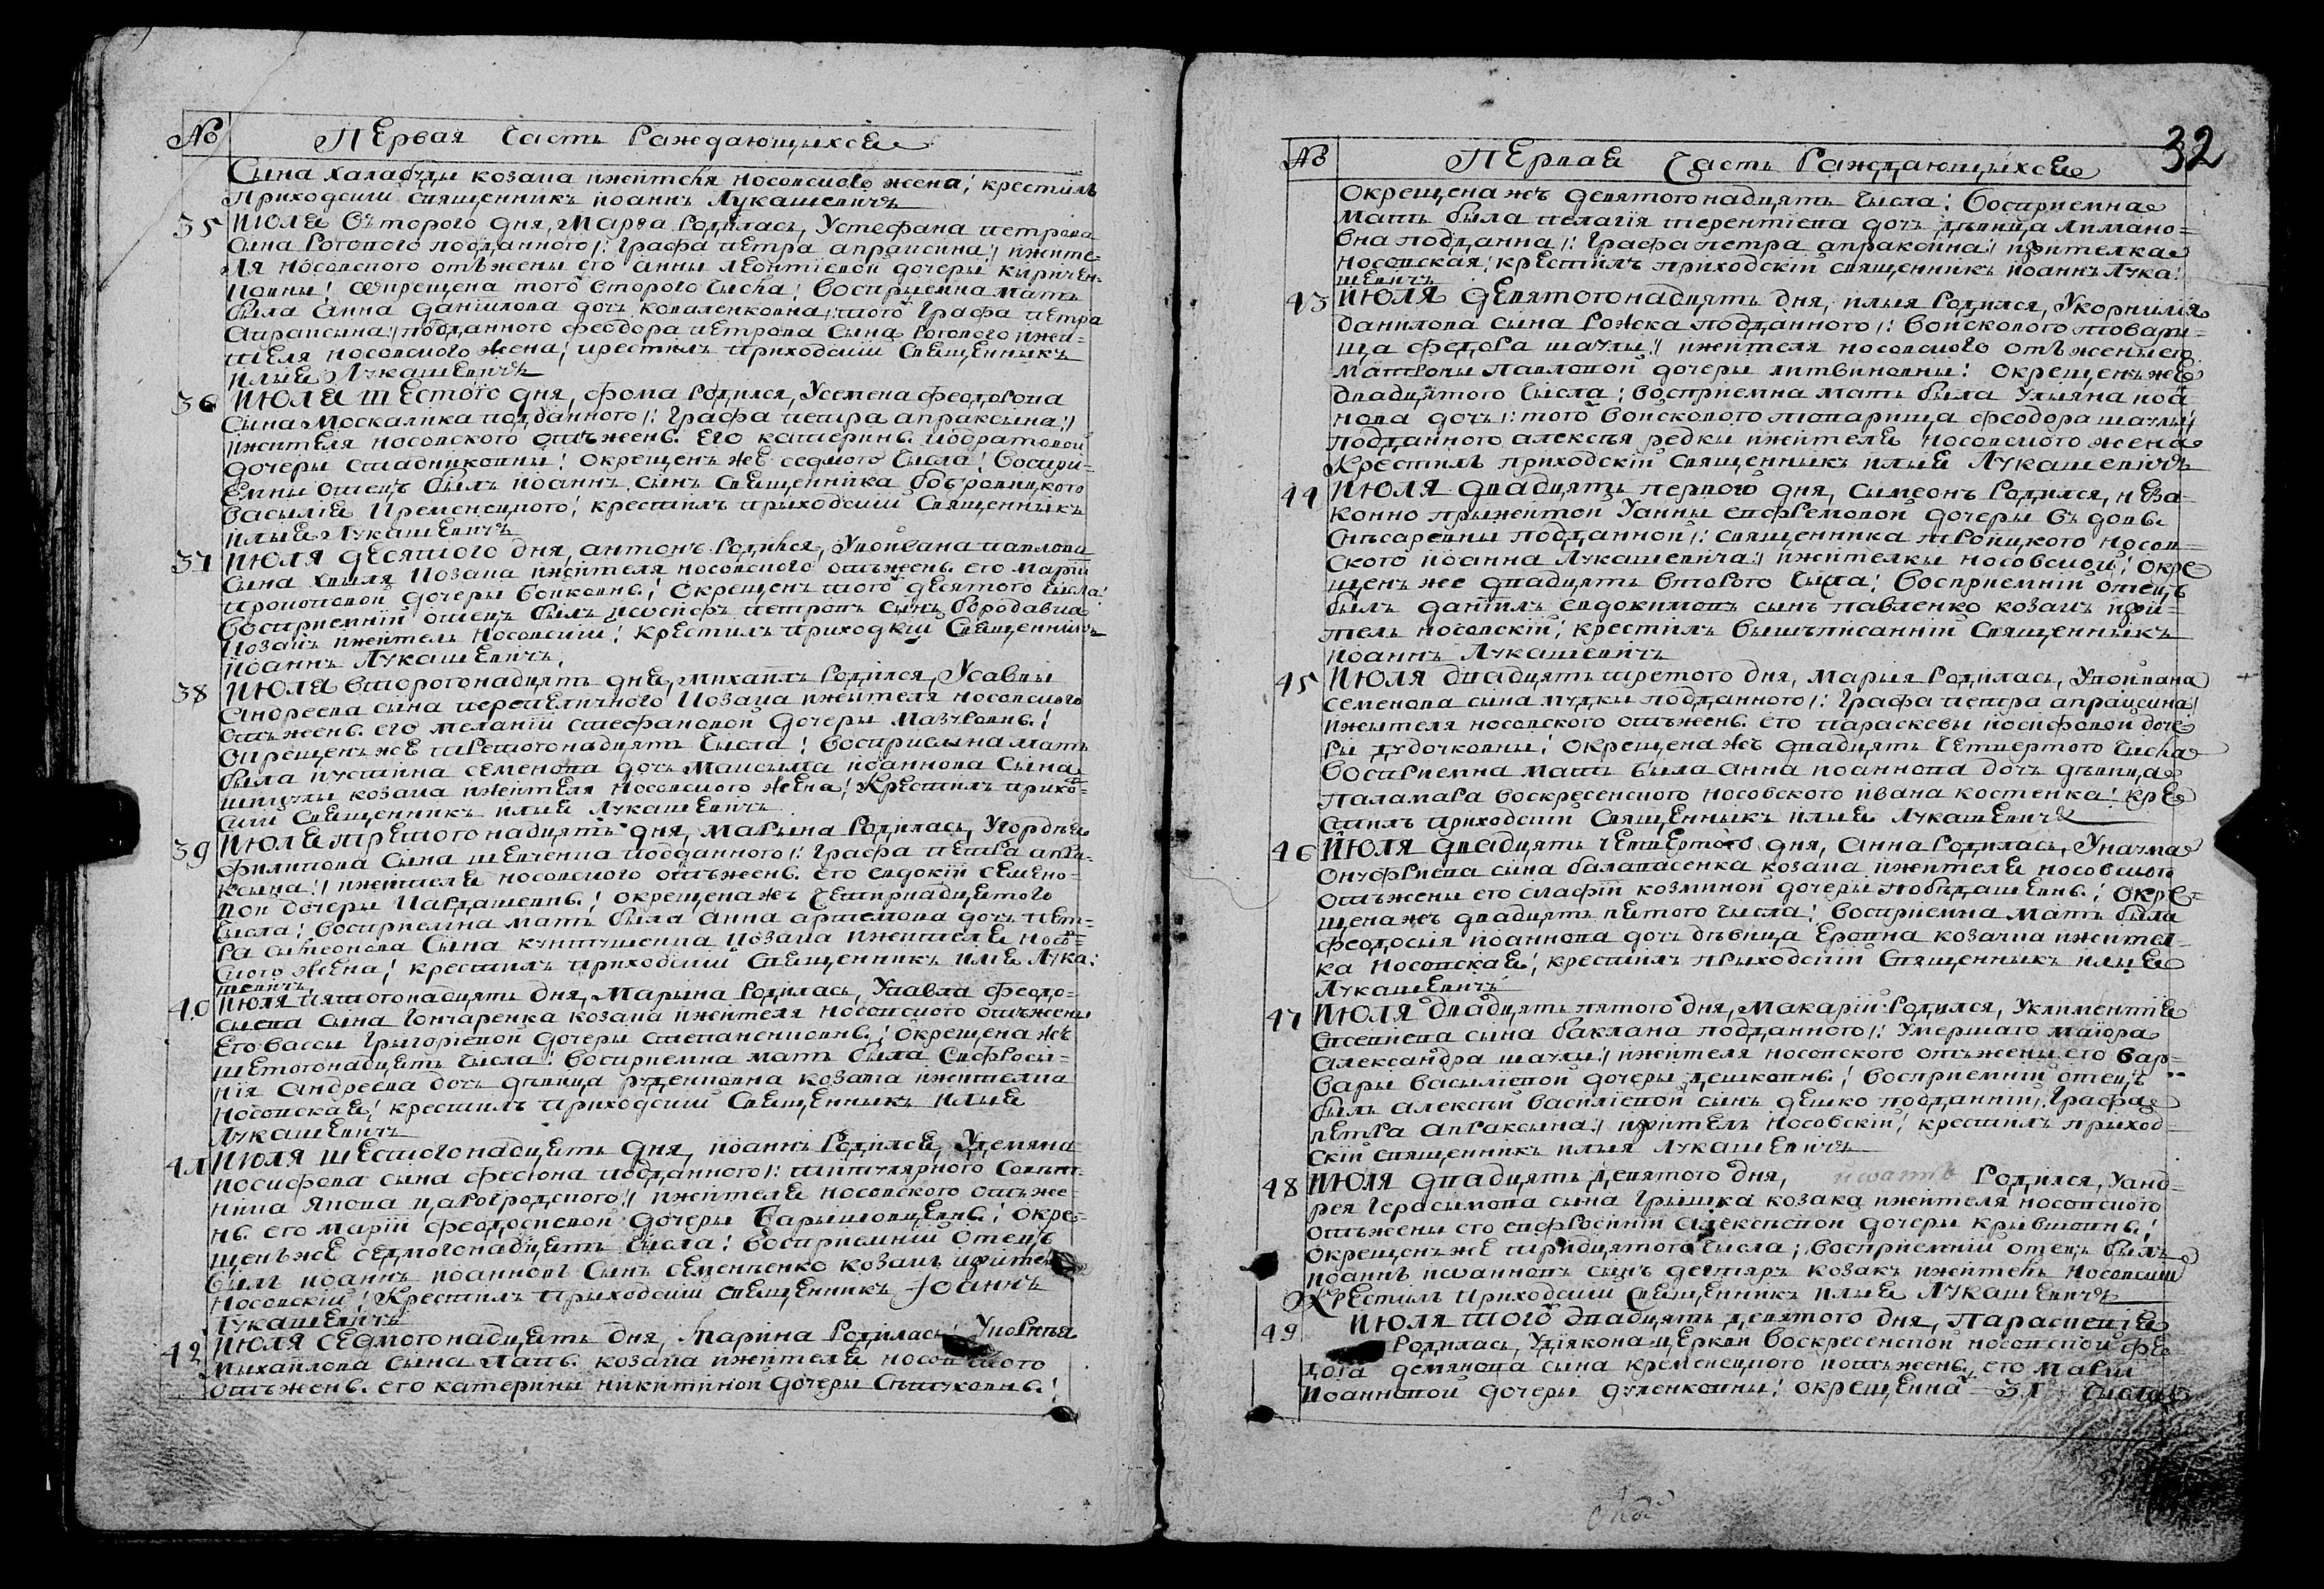 № Первая Часть Раждающыхсе
Сына халабуды козака ижителя носовского жена; крестилъ
Приходский священникъ иоаннъ Лукашевичъ
35 Июля Въторого дня, Марфа Родилась, Устефана петрова
сына Ротового подданного /: Графа петра апраксина :/ ижите-
ля носовского отъжены его анны леонтиевой дочеры киричен-
ковны; окрещена того второго числа; восприемна мать
была анна данилова дочъ коваленковна, того Графа петра
апраксина :/ подданного феодора петрова сына ротового ижи-
теля носовского жена; крестилъ приходский священныкъ
илия Лукашевичъ
36 Июля шестого дня, фома родился, Усемена феодорова
сына Москалика подданного /: Графа петра апраксына :/
ижителя носовского отъженѣ его катеринѣ кодратовой
дочеры стадниковны; окрещенъ же седмого числа; воспри-
емны отецъ былъ иоаннъ сынъ священника бобровицкого
василия кременецкого; крестилъ прыходский священныкъ
илия Лукашевичъ
37 Июля десятого дня, антонъ родился, Укоивана павлова
сына хвиля козака ижителя носовского отъженѣ его марии
прокоповой дочеры бойковнѣ; окрещенъ того десятого числа;
восприемний отецъ былъ иосифъ петровъ сынъ бородавка
козакъ ижитель носовский; крестилъ приходский священникъ
иоаннъ Лукашевичъ,
38 Июля второгонадцять дня, михаилъ родился, Усавы
андреева сына перепеличного козака ижителя носовского
отъженѣ его мелании стефановой дочеры мазуровнѣ;
окрещенъ же третогонадцять числа; восприемна мать
была иустина семенова дочъ максыма иоаннова сына
шкулы козака ижителя носовского жена; крестилъ прихо-
ский священникъ илия Лукашевичъ
39 Июля третогонадцять дня, марына родилась, Угордѣя
филипова сына шевченка подданного /: Графа петра апра-
ксына :/ ижителя носовского отъженѣ его евдокии семено-
вой дочеры кардашевнѣ; окрещена жъ четырнадцятого
числа; восприемна мать была анна артемова дочъ пет-
ра симеонова сына кунтушенка козака ижителя носов-
ского жена; крестилъ приходский священникъ илия Лука:
шевичъ
40 Июля пятогонадцять дня, Марына родилась, Упавла феодо-
сиева сына гончаренка козака ижителя носовского отъжены
его вассы григориевой дочеры степаненковнѣ; окрещена жъ
шетогонадцять числа; восприемна мать была евфроси-
ния андреева дочъ дѣвица руденковна козачка ижителка
носовская; крестилъ приходский священныкъ илия
Лукашевичъ
41 Июля шестогонадцять дня, иоаннъ родился, Удемяна
иосифова сына фесюна подданного /: титулярного совѣт-
ника якова цароградского :/ ижителя носовского отъже-
нѣ его марии феодосиевой дочеры барышовцевнѣ; окре-
щенъ же седмогонадцять числа; восприемний отецъ
былъ иоаннъ иоанновъ сынъ семененко козакъ ижител
носовский; крестилъ прыходский священникъ Иоаннъ
Лукашевичъ
42 Июля седмогонадцять дня, Марина родилась, Укорнѣя
михайлова сына козака ижителя носовского
отъженѣ его катерины никитиной дочеры сѣтуховнѣ;
№ Первая Часть Раждающыхсе 32
окрещена жъ девятогонадцять числа; восприемна
мать была пелагия терентиева дочъ дѣвица лимано-
вна подданна /: графа петра апраксина :/ ижителка
носовская; крестилъ приходский священникъ иоаннъ Лука:
шевичъ
43 Июля девятогонадцять дня, илия родился, Укорнилия
данилова сына рожка подданного /: войскового товари-
ща федора шаулы :/ ижителя носовского отъжены его
матроны павловой дочеры литвиновны; окрещенъ же
двадцятого числа; восприемна мать была ульяна иоа-
нова дочъ /: того войскового товарища феодора шаулы :/
подданного алексея редки ижителя носовского жена
крестилъ приходский священныкъ илия Лукашевичъ
44 Июля двадцять первого дня, симеонъ родился, неза-
конно прыжитой Уанны евфремовой дочеры вдовѣ
снѣсаревны подданной /: священника троицкого носов-
ского иоанна лукашевича :/ ижителкы носовской; окре
щенъ же двадцять второго числа; восприемний отецъ
былъ даниилъ евдокимовъ сынъ павленко козакъ ижи-
тель носовский; крестилъ вышъписанний священныкъ
иоаннъ Лукашевичъ
45 Июля двадцять третого дня, марыя родилась, Укоивана
семенова сына мулки подданного /: Графа петра апраксина :/
ижителя носовского отъженѣ его параскевы иосифовой доче
ры дудочковны; окрещена жъ двадцять четвертого числа
восприемна мать была анна иоаннова дочъ дѣвица
паламара воскресенского носовского ивана костенка; кре
стилъ приходский священныкъ илия Лукашевичъ
46 Июля двадцять четвертого дня, анна родилась, Унаума
онуфриева сына балапасенка козака ижителя носовского
отъжены его агафии козминой дочеры побѣдашевнѣ; окре-
щена жъ двадцять пятого числа; восприемна мать была
феодосия иоаннова дочъ дѣвица козачка ижител-
ка носовская; крестилъ прыходский священныкъ илия
Лукашевичъ
47 Июля двадцять пятого дня, макарий родился, Уклиментия
евсевиева сына баклана подданного /: умершаго маиора
александра шаулы :/ ижителя носовского отъжены его вар-
вары василиевой дочеры дешковнѣ; восприемний отецъ
былъ алексѣй василиевой сынъ дешко подданний, графа
петра апраксына :/ ижитель носовский; крестилъ приход-
ский священникъ илия Лукашевичъ
48 Июля двадцять девятого дня, иоаннъ родился, Уанд-
рея герасимова сына грышка козака ижителя носовского
отъжены его евфросинии алексиевой дочеры крывшовнѣ;
окрещенъ же тридцятого числа; восприемний отецъ былъ
иоаннъ иоанновъ сынъ дегтяръ козакъ ижитель носовский
крестилъ приходский священникъ илия Лукашевичъ
49 Июля того двадцять девятого дня, Параскевия
родилась, Удиякона церкви воскресенской носовской фе
дора демянова сына кременецкого иотъженѣ его марии
иоанновой дочеры дуленковны; окрещенна 31 числа